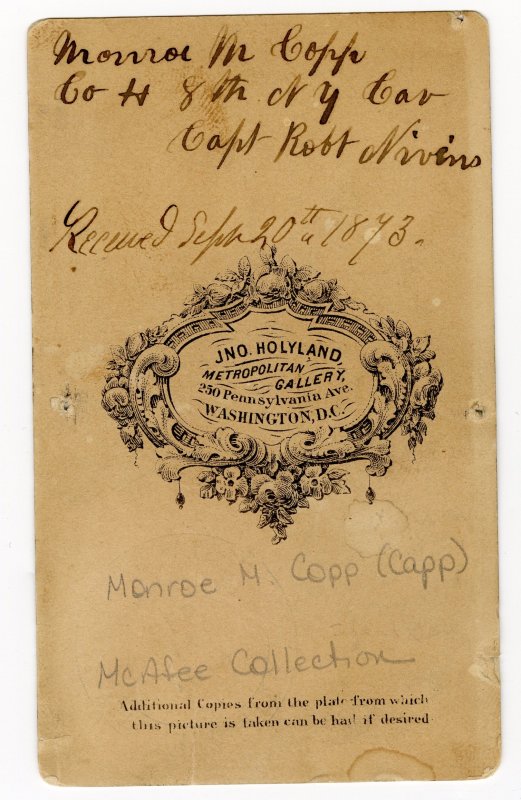 Monroe M Copp
Co H 8th N Y Cav
Capt Robt Nivins
Received Sept 20th 1873.
JNO. HOLYLAND,
METROPOLITAN
GALLERY,
250 Pennsylvania Ave.
WASHINGTON, D.C.
Monroe M. Copp (Capp)
McAfee Collection
Additional Copies from the plate from which
this picture is taken can be had if desired